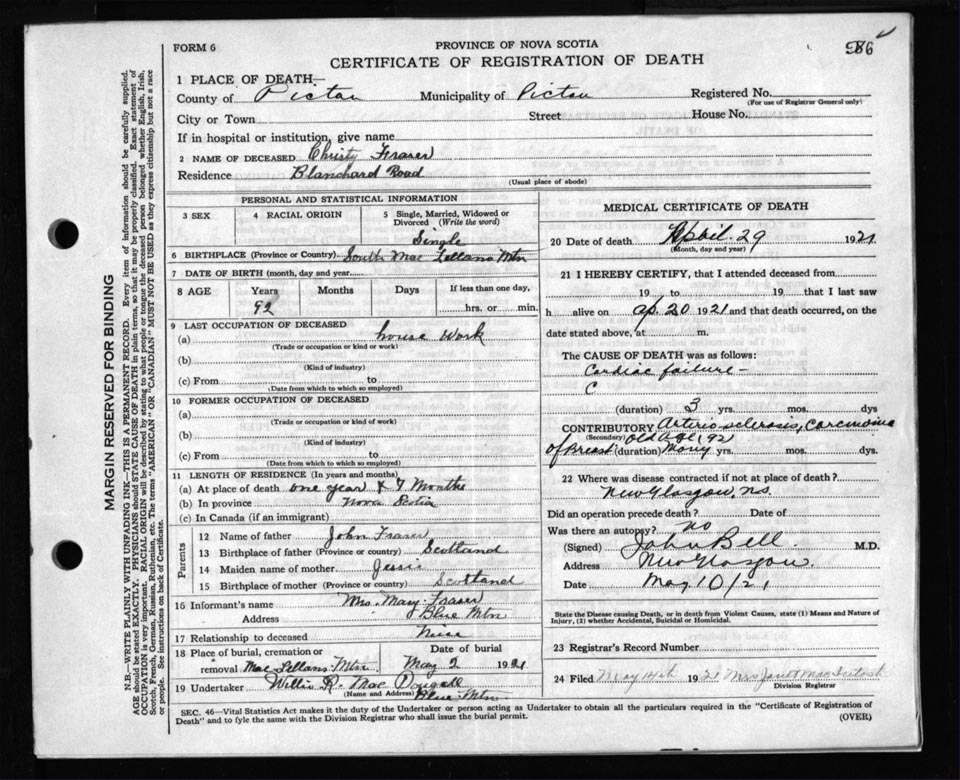 FORM 6
PROVINCE OF NOVA SCOTIA
586
CERTIFICATE OF REGISTRATION OF DEATH
1 PLACE OF DEATH—
County of Pictou Municipality of Pictou Registered No.
(For use of Registrar General only)
City or Town Street House No.
If in hospital or institution, give name
2 NAME OF DECEASED Christy Fraser
Residence Blanchard Road
(Usual place of abode)
PERSONAL AND STATISTICAL INFORMATION
3 SEX 4 RACIAL ORIGIN 5 Single, Married, Widowed or Divorced (Write the word)
Single
6 BIRTHPLACE (Province or Country) South Mac Lellans Mtn
7 DATE OF BIRTH (month, day and year)
8 AGE Years Months Days If less than one day,
92 hrs. or min.
9 LAST OCCUPATION OF DECEASED
(a) house work
(Trade or occupation or kind or work)
(b)
(Kind of industry)
(c) From to
(Date from which to which so employed)
10 FORMER OCCUPATION OF DECEASED
(a)
(Trade or occupation or kind of work)
(b)
(Kind of industry)
(c) From to
(Date from which to which so employed)
11 LENGTH OF RESIDENCE (In years and months)
(a) At place of death one year & 7 Months
(b) In province Nova Scotia
(c) In Canada (if an immigrant)
Parents
12 Name of father John Fraser
13 Birthplace of father (Province or country) Scotland
14 Maiden name of mother Jessie
15 Birthplace of mother (Province or country) Scotland
16 Informant's name Mrs. Mary Fraser
Address Blue Mtn
17 Relationship to deceased Niece
18 Place of burial, cremation or Date of burial
removal Mac Lellans Mtn. May 2 1921
19 Undertaker Willis R. Mac Dougall
(Name and Address) Blue Mtn
MEDICAL CERTIFICATE OF DEATH
20 Date of death April 29 1921
(Month, day and year)
21 I HEREBY CERTIFY, that I attended deceased from
19 to 19 that I last saw
h alive on Ap. 20 1921 and that death occurred, on the
date stated above, at m.
The CAUSE OF DEATH was as follows:
Cardiac failure –
C
(duration) 3 yrs. mos. dys
CONTRIBUTORY Arterio sclerosis, Carcinoma
(Secondary) old age, 92
of Breast (duration) Many yrs. mos. dys.
22 Where was disease contracted if not at place of death?
New Glasgow, N.S.
Did an operation precede death? Date of
Was there an autopsy? no
(Signed) John Bell M.D.
Address New Glasgow
Date May 10/21
State the Disease causing Death, or in death from Violent Causes, state (1) Means and Nature of
Injury, (2) whether Accidental, Suicidal or Homicidal.
23 Registrar's Record Number
24 Filed May 14th 1921 Mrs Janet MacIntosh
Division Registrar
SEC. 46—Vital Statistics Act makes it the duty of the Undertaker or person acting as Undertaker to obtain all the particulars required in the "Certificate of Registration of
Death" and to fyle the same with the Division Registrar who shall issue the burial permit.
(OVER)
MARGIN RESERVED FOR BINDING
N.B.—WRITE PLAINLY WITH UNFADING INK—THIS IS A PERMANENT RECORD. Every item of information should be carefully supplied.
AGE should be stated EXACTLY. PHYSICIANS should STATE CAUSE OF DEATH in plain terms, so that it may be properly classified. Exact statement of
OCCUPATION is very important. RACIAL ORIGIN will be described by stating to what people or tongue the deceased person belonged whether English, Irish,
Scotch, French, German, Russian, Ruthenian, etc. The terms "AMERICAN" OR "CANADIAN" MUST NOT BE USED as they express citizenship but not a race
or people. See instructions on back of Certificate.